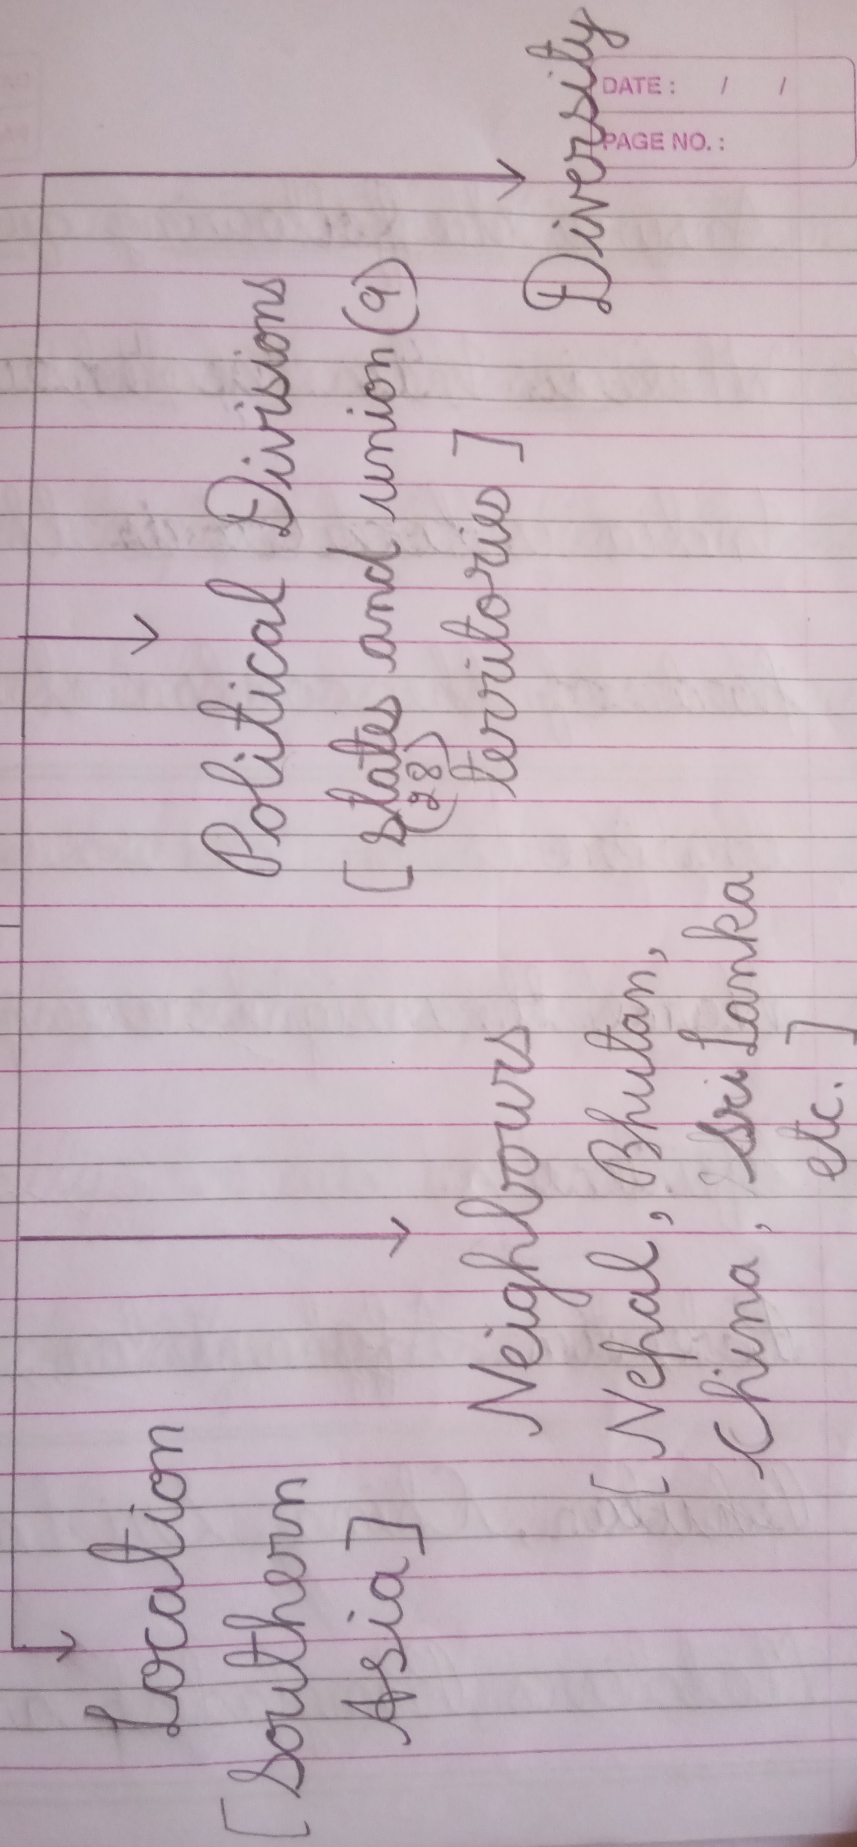 DATE : / /
PAGE NO. :
Location
[Southern
Asia]
Neighbours
[Nepal, Bhutan,
China, Sri Lanka
etc.]
Political Divisions
[states and union (9)
(28)
territories]
Diversity